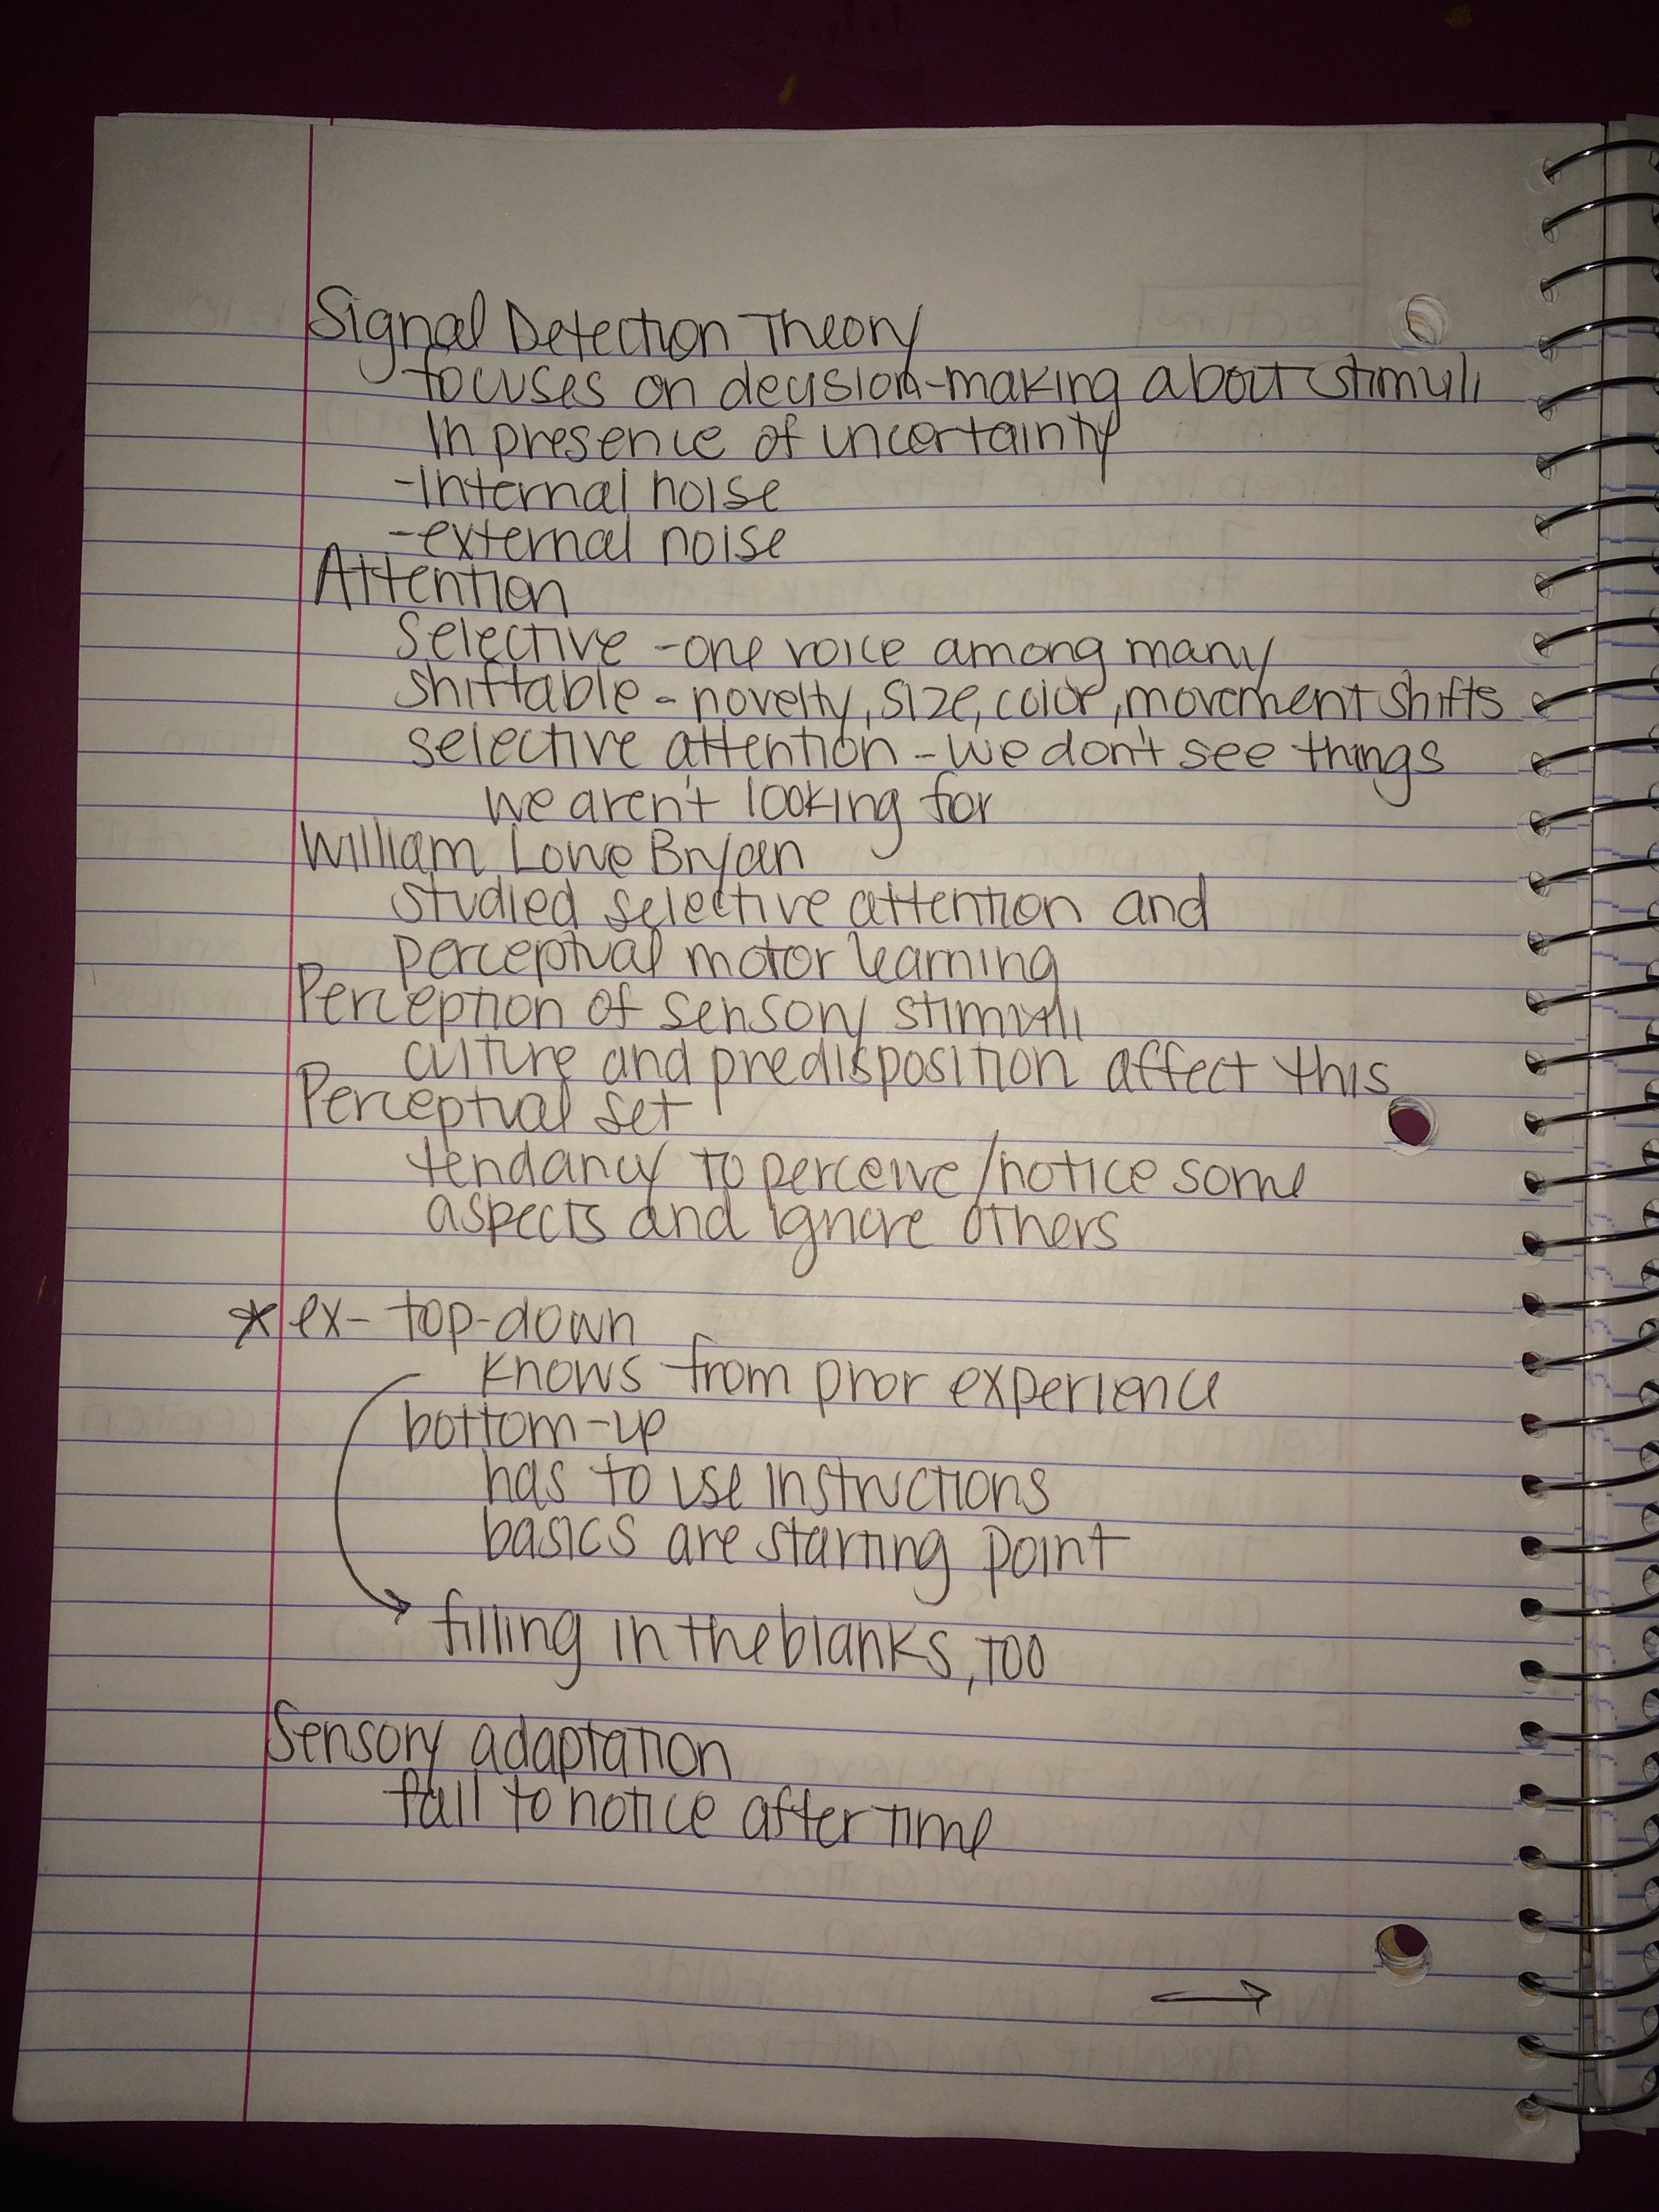 Signal Detection Theory
focuses on decision-making about stimuli
in presence of uncertainty
-internal noise
-external noise
Attention
selective - one voice among many
shiftable - novelty, size, color, movement shifts
selective attention - we don't see things
we aren't looking for
William Lowe Bryan
studied selective attention and
perceptual motor learning
Perception of sensory stimuli
culture and predisposition affect this
Perceptual set
tendancy to perceive/notice some
aspects and ignore others
* ex- top-down
knows from prior experience
bottom-up
has to use instructions
basics are starting point
→ filling in the blanks, too
Sensory adaptation
fail to notice after time
→